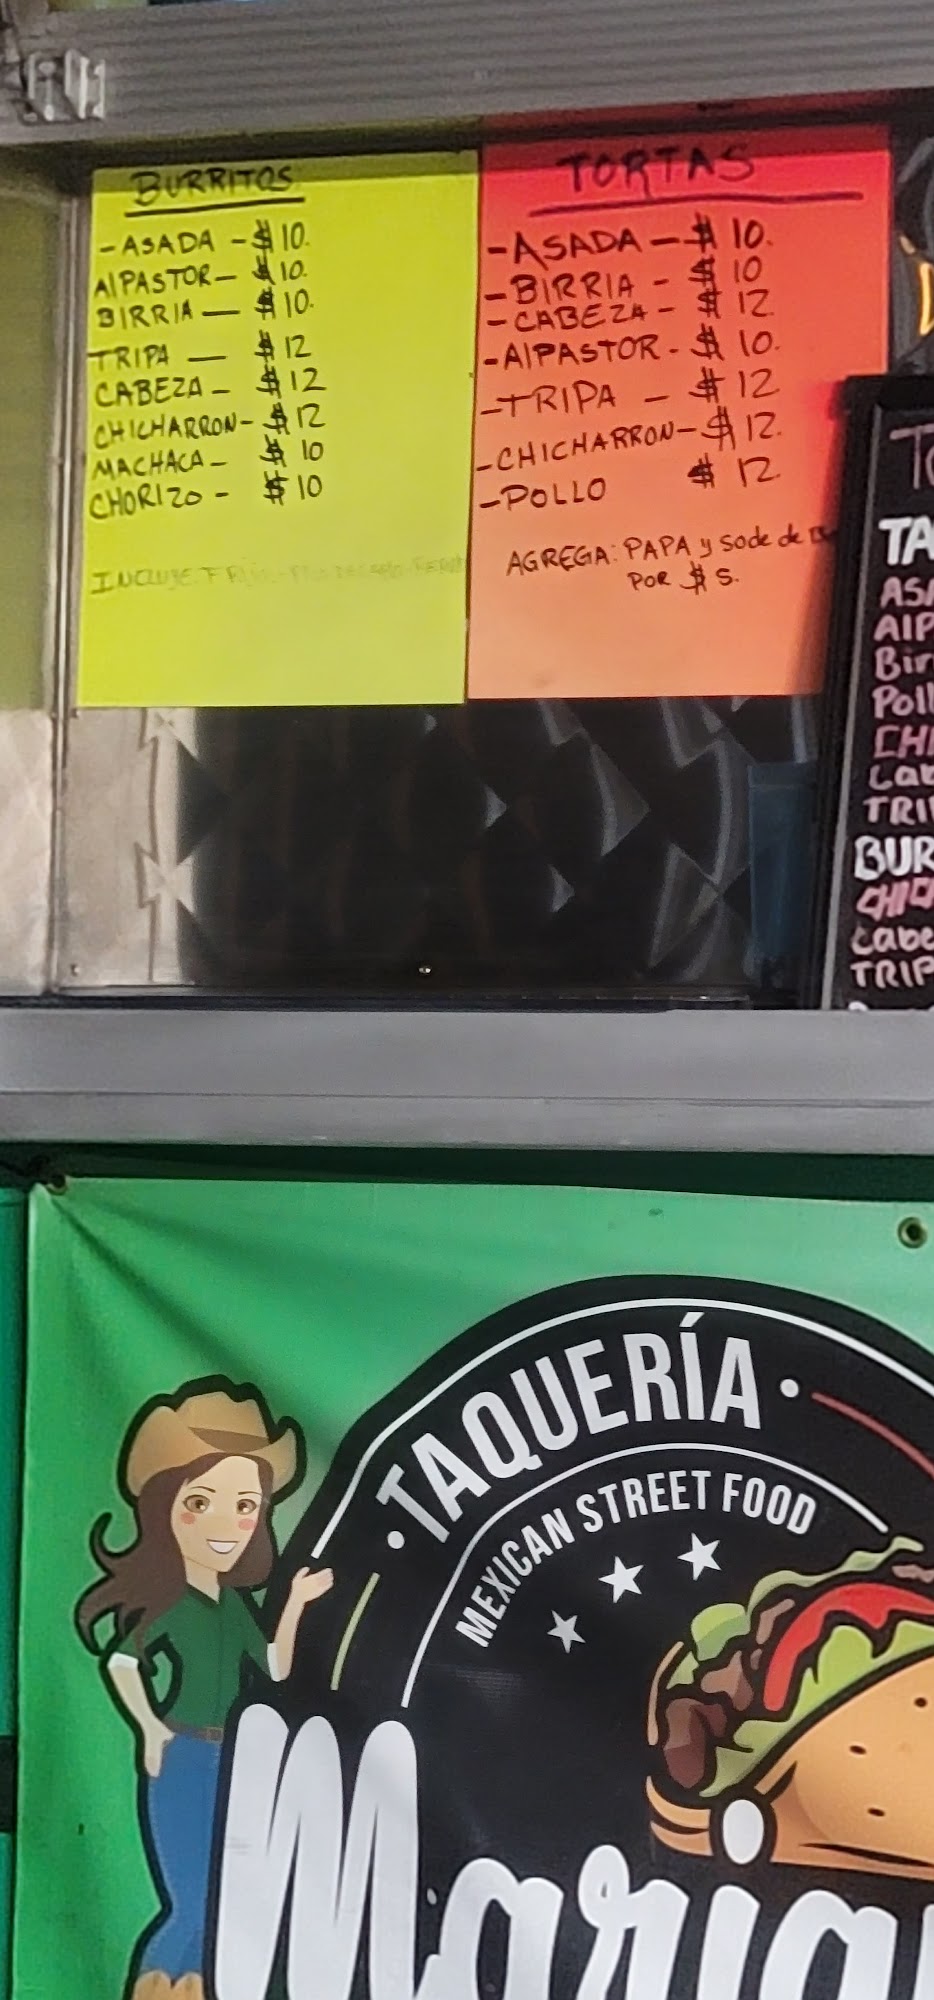 BURRITOS
-ASADA -$10.
AlPASTOR- $10.
BIRRIA — $10.
TRIPA — $12
CABEZA - $12
CHICHARRON- $12
MACHACA- $10
CHORIZO - $10
INCLUYE:
TORTAS
-ASADA -$ 10.
-BIRRIA - $10
-CABEZA - $12.
-AlPASTOR - $10.
-TRIPA - $12
-CHICHARRON-$12.
-POLLO $12.
AGREGA: PAPA y sode de
POR $5.
TA
ASA
AlP
Bir
Poll
CHI
Cab
TRI
BUR
CHIC
Cabe
TRIP
· TAQUERÍA ·
MEXICAN STREET FOOD
Maria